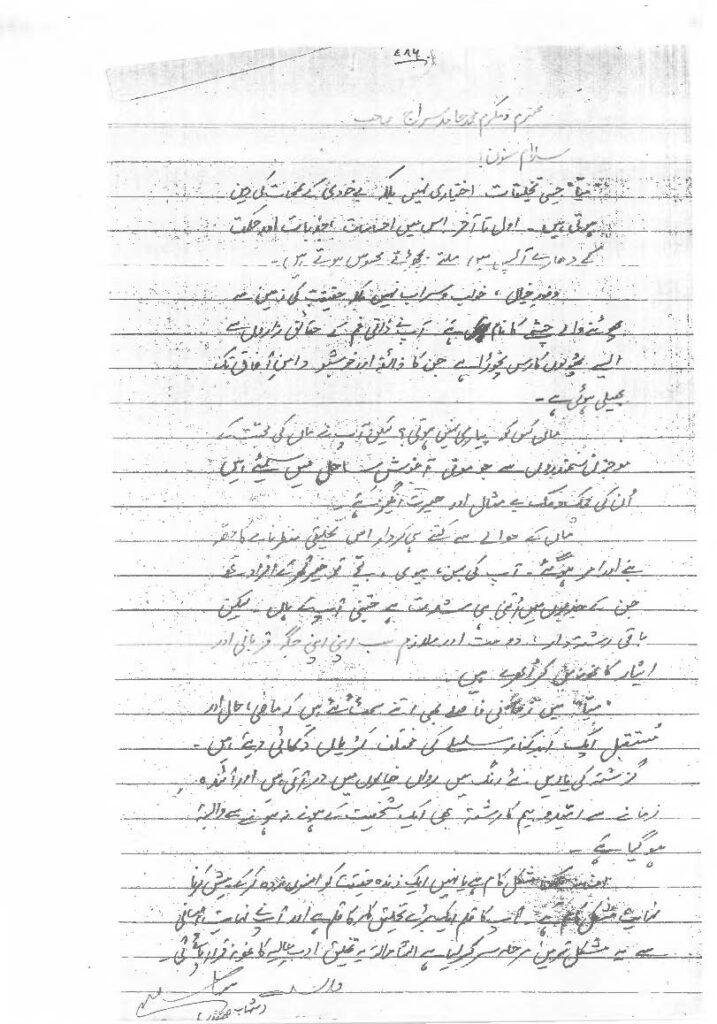 ۷۸۶
محترم و مکرم محمد حامد سراج صاحب
سلام مسنون!
"میّا" جیسی تخلیقات اختیاری نہیں بلکہ بے خودی کے لمحات کی دین
ہوتی ہیں۔ اول تا آخر اس میں احساسات، جذبات اور حکمت
کے دھارے آپس میں ملتے بچھڑتے محسوس ہوتے ہیں۔
وفورِ خیال، خواب و سراب نہیں بلکہ حقیقت کی زمین سے
پھوٹنے والے چشمے کا نام ہے۔ آپ نے ذاتی غم کے حقائق زاروں سے
ایسے پھولوں کا رس نچوڑا ہے جن کا ذائقہ اور خوشبو دامنِ آفاق تک
پھیلی ہوئی ہے۔
ماں کس کو پیاری نہیں ہوتی؟ لیکن آپ نے ماں کی محبت کے
موجزن سمندروں سے جو موتی آغوشِ ساحل میں سمیٹے ہیں
اُن کی چمک دمک بے مثال اور حیرت انگیز ہے۔
ماں کے حوالے سے کتنے ہی کردار اس تخلیقی منظر نامے کا حصہ
بنے اور امر ہو گئے۔ آپ کی بہن، بیوی، بچے تو خیر گھر کے افراد تھے
جن کے جذبوں میں اُتنی ہی شدت ہے جتنی آپ کے ہاں۔ لیکن
باقی رشتہ دار، دوست اور ملازم سب اپنی اپنی جگہ قربانی اور
ایثار کا نمونہ بن کر اُبھرے ہیں۔
"میّا" میں زمانی فاصلے بھی ایسے سمٹ آئے ہیں کہ ماضی، حال اور
مستقبل ایک ہی سلسلے کی مختلف کڑیاں دکھائی دیتے ہیں۔
گزشتہ کی یادیں نئے رنگ میں رواں خیالوں میں در آتی ہیں اور آئندہ
زمانے سے امید و بیم کا رشتہ بھی ایک شخصیت کے ہونے نہ ہونے سے وابستہ
ہو گیا ہے۔
مشکل کام ہے یا نہیں ایک زندہ حقیقت کو کر کے پیش کرنا
نہایت مشکل کام ہے۔ آپ کا قلم ایک بڑے تخلیق کار کا قلم ہے اور آپ نے نہایت آسانی
سے یہ مشکل ترین مرحلہ سر کر لیا ہے انشاءاللہ یہ تخلیق ادبِ عالیہ کا نمونہ قرار پائے گی۔
والسلام
(شہاب صفدر)